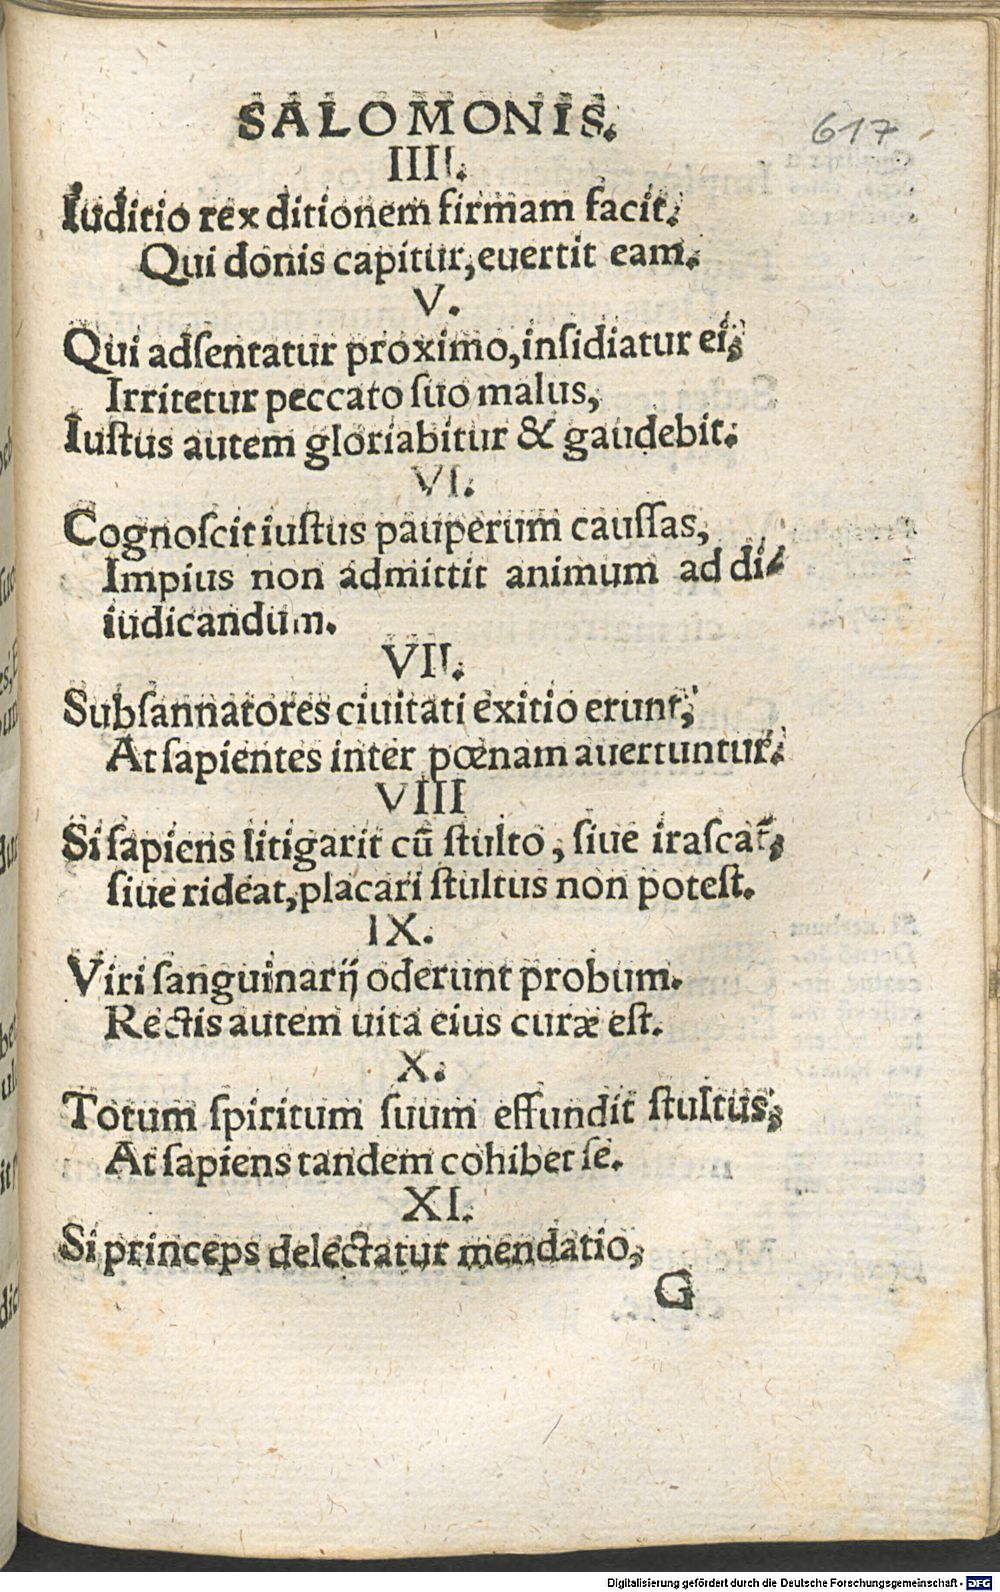 SALOMONIS.
617
IIII.
Iuditio rex ditionem firmam facit.
Qui donis capitur, euertit eam.
V.
Qui adſentatur proximo, inſidiatur ei,
Irritetur peccato ſuo malus,
Iuſtus autem gloriabitur & gaudebit.
VI.
Cognoſcit iuſtus pauperum cauſſas,
Impius non admittit animum ad di-
iudicandum.
VII.
Subſannatores ciuitati exitio erunt,
At ſapientes inter pœnam auertuntur.
VIII
Si ſapiens litigarit cū ſtulto, ſiue iraſcat̄,
ſiue rideat, placari ſtultus non poteſt.
IX.
Viri ſanguinarij oderunt probum.
Rectis autem uita eius curæ eſt.
X.
Totum ſpiritum ſuum effundit ſtultus,
At ſapiens tandem cohibet ſe.
XI.
Si princeps delectatur mendatio,
G
Digitalisierung gefördert durch die Deutsche Forschungsgemeinschaft - DFG